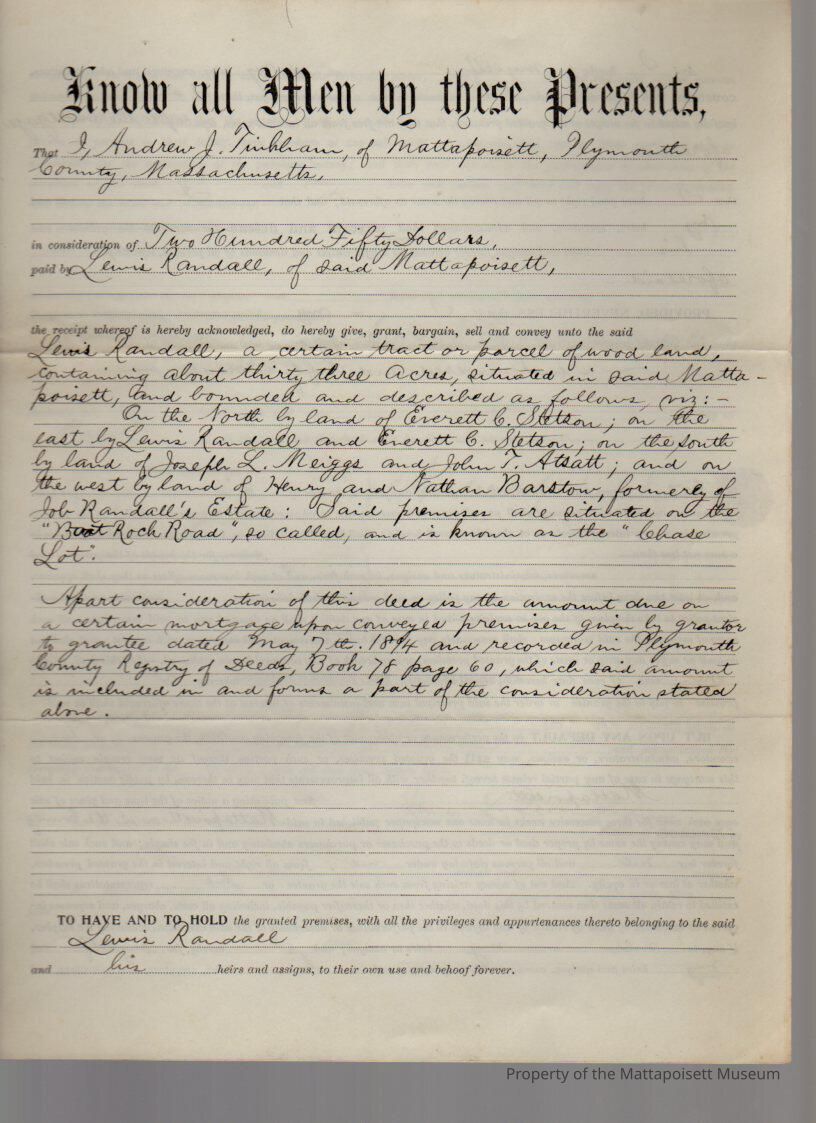 Know all Men by these Presents,
That I, Andrew J. Tinkham, of Mattapoisett, Plymouth
County, Massachusetts,
in consideration of Two Hundred Fifty Dollars,
paid by Lewis Randall, of said Mattapoisett,
the receipt whereof is hereby acknowledged, do hereby give, grant, bargain, sell and convey unto the said
Lewis Randall, a certain tract or parcel of wood land,
containing about thirty three Acres, situated in said Matta-
poisett, and bounded and described as follows, viz:-
On the North by land of Everett C. Stetson; on the
east by Lewis Randall and Everett C. Stetson; on the south
by land of Joseph L. Meiggs and John T. Atsatt; and on
the west by land of Henry and Nathan Barstow, formerly of
Job Randall's Estate: Said premises are situated on the
" Rock Road", so called, and is known as the "Chase
Lot".
Apart consideration of this deed is the amount due on
a certain mortgage upon conveyed premises given by grantor
to grantee dated May 7th. and recorded in Plymouth
County Registry of Deeds, Book 78 page 60, which said amount
is included in and forms a part of the consideration stated
above.
TO HAVE AND TO HOLD the granted premises, with all the privileges and appurtenances thereto belonging to the said
Lewis Randall
and his heirs and assigns, to their own use and behoof forever.
Property of the Mattapoisett Museum